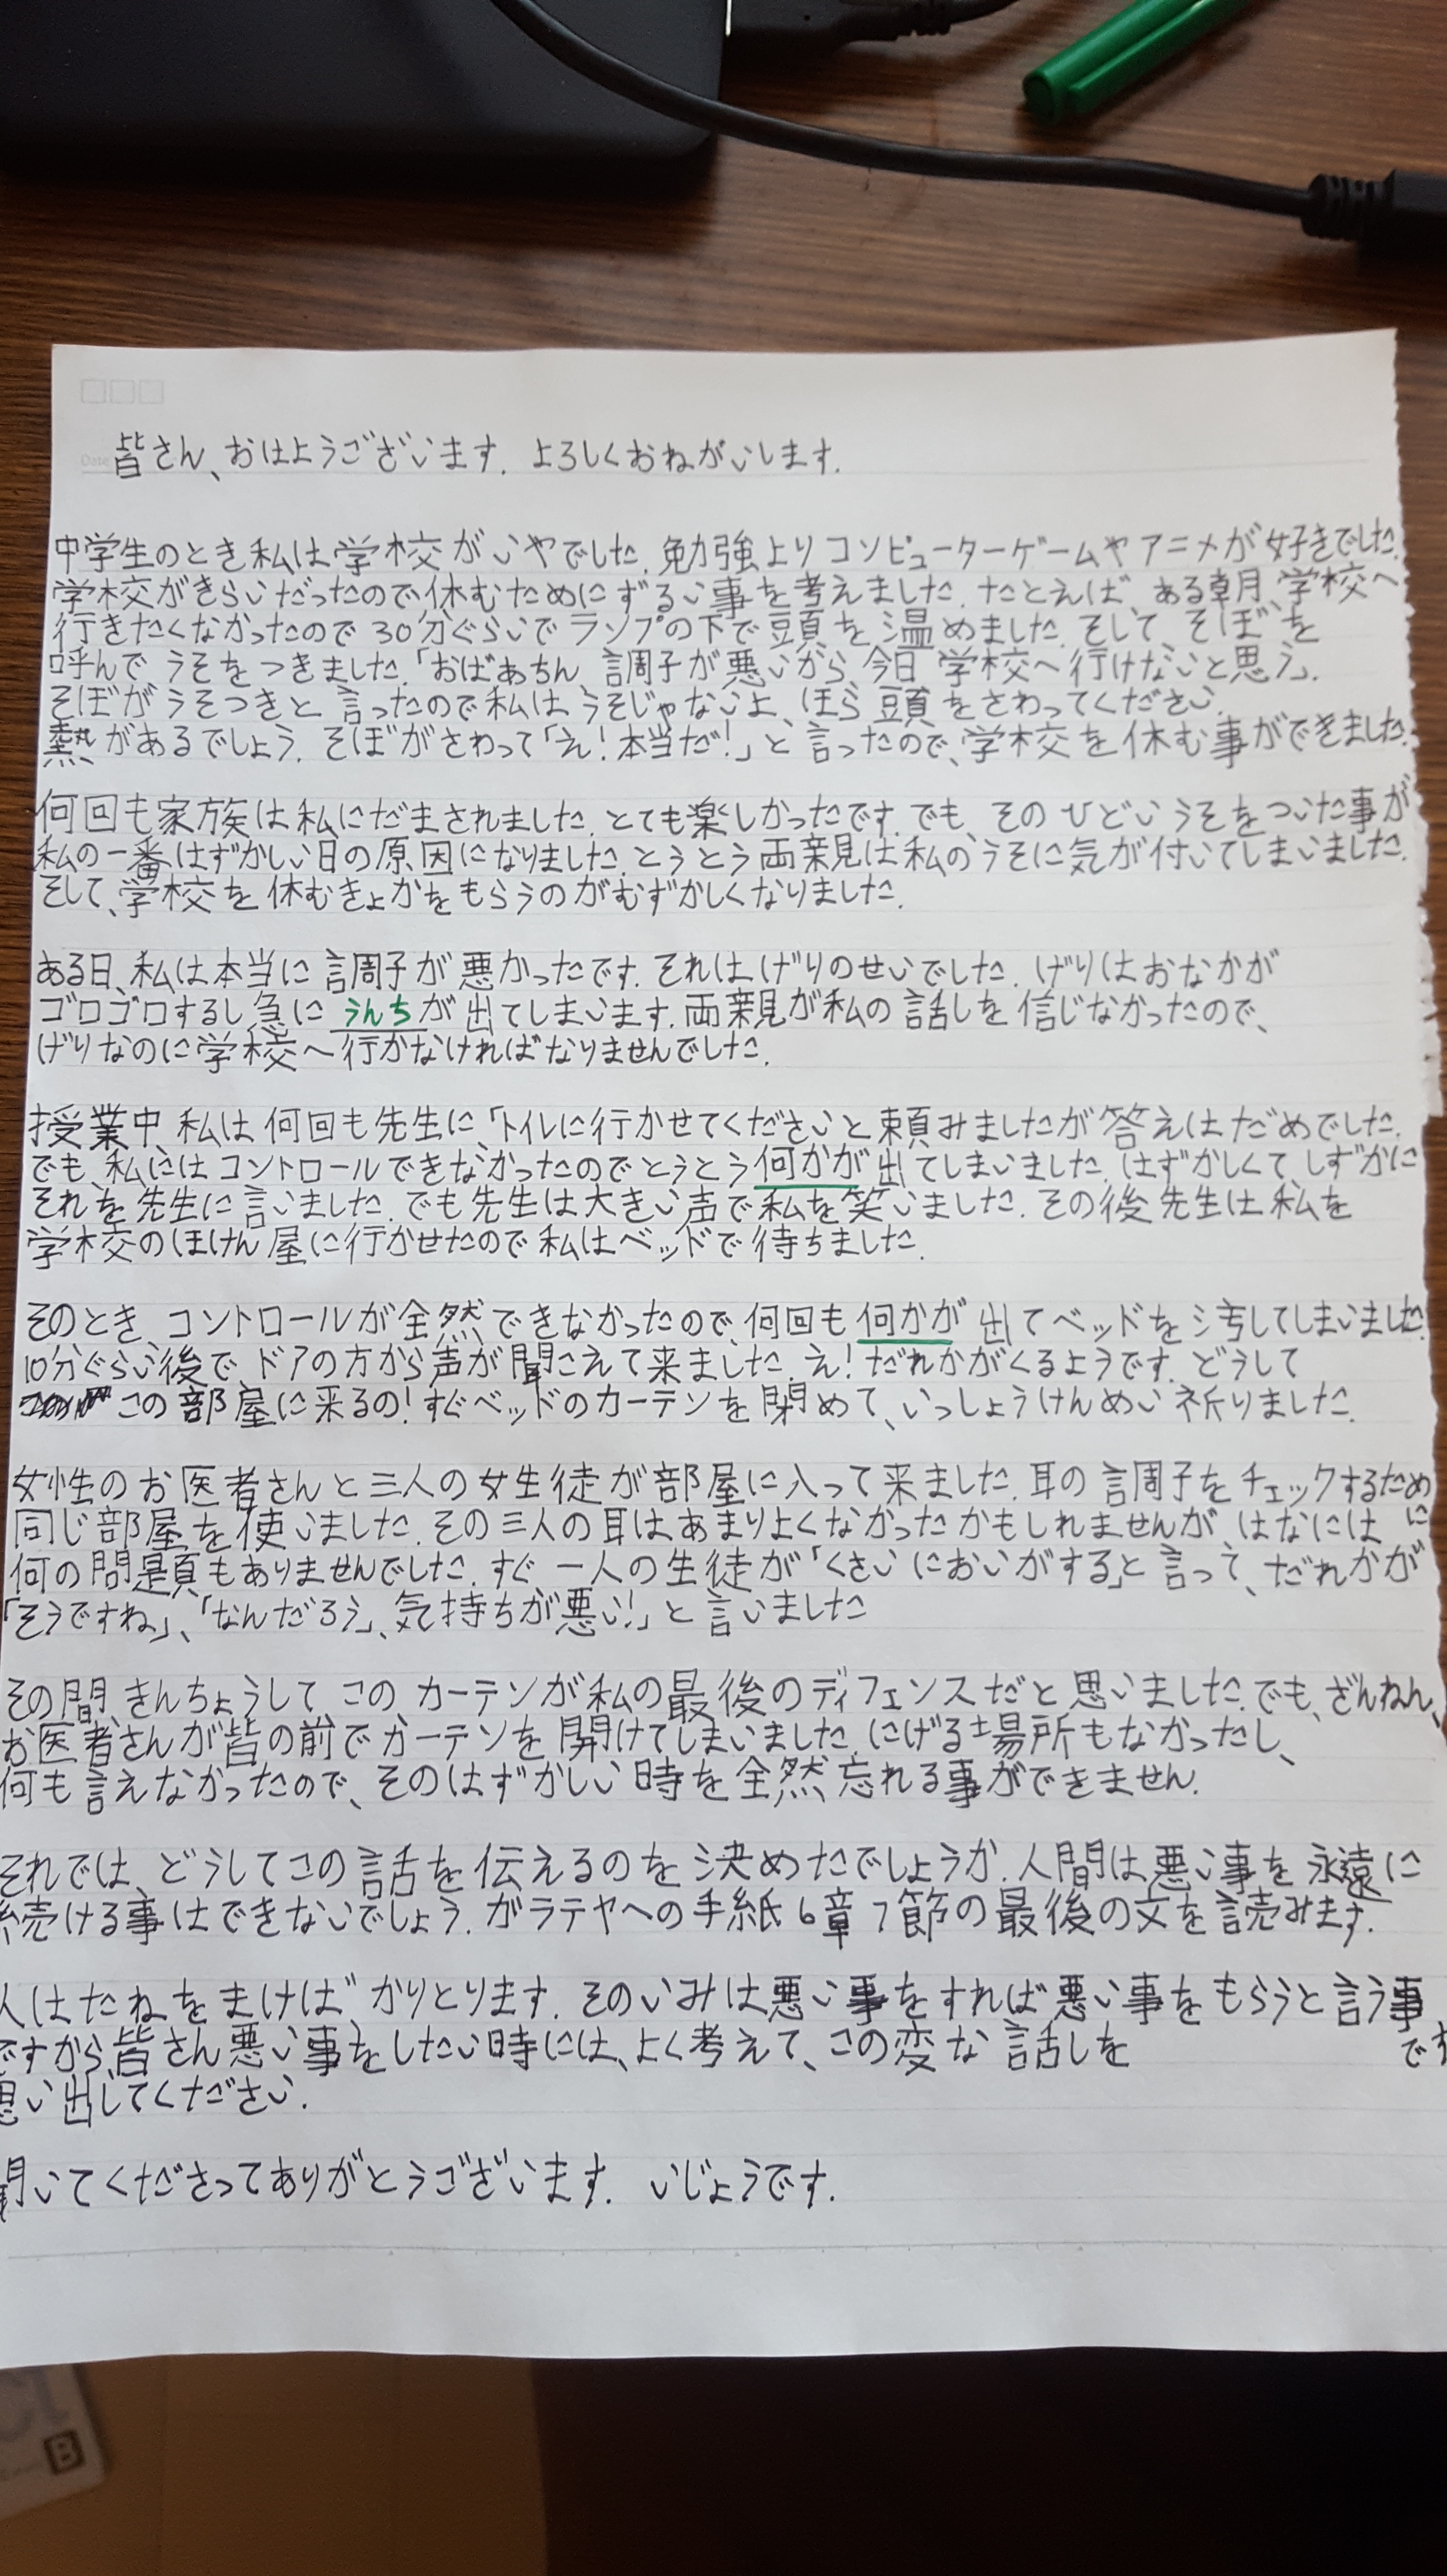 皆さん、おはようございます. よろしくおねがいします.
中学生のとき私は学校がいやでした. 勉強よりコンピューターゲームやアニメが好きでした.
学校がきらいだったので休むためにずるい事を考えました. たとえば ある朝、学校へ
行きたくなかったので30分ぐらいでランプの下で頭を温めました. そして、そぼを
呼んでうそをつきました.「おばあちん 調子が悪いから、今日 学校へ行けないと思う」.
そぼがうそつきと言ったので私は、うそじゃないよ、ほら頭をさわってください.
熱があるでしょう. そぼがさわって「え!本当だ!」と言ったので、学校を休む事ができました.
何回も家族は私にだまされました. とても楽しかったです. でも、そのひどいうそをついた事が
私の一番はずかしい日の原因になりました. とうとう両親は私のうそに気が付いてしまいました.
そして、学校を休むきょかをもらうのがむずかしくなりました.
ある日、私は本当に調子が悪かったです. それはげりのせいでした. げりはおなかが
ゴロゴロするし急にうんちが出てしまいます. 両親が私の話しを信じなかったので、
げりなのに学校へ行かなければなりませんでした.
授業中、私は何回も先生に、「トイレに行かせてくださいと頼みましたが答えはだめでした.
でも、私にはコントロールできなかったのでとうとう何かが出てしまいました. はずかしくて、しずかに
それを先生に言いました. でも先生は大きい声で私を笑いました. その後先生は私を
学校のほけん屋に行かせたので私はベッドで待ちました.
そのとき、コントロールが全然できなかったので、何回も何かが出てベッドを汚してしまいました.
10分ぐらい後で、ドアの方から声が聞こえて来ました. え! だれかがくるようです. どうして
この部屋に来るの! すぐベッドのカーテンを閉めて、いっしょうけんめい祈りました.
女性のお医者さんと三人の女生徒が部屋に入って来ました. 耳の調子をチェックするため
に
同じ部屋を使いました. その三人の耳はあまりよくなかったかもしれませんが、はなには
何の問題もありませんでした. すぐ 一人の生徒が「くさいにおいがする」と言って、だれかが
「そうですね」、「なんだろう」、気持ちが悪い!」と言いました
その間、きんちょうして、この カーテンが私の最後のディフェンスだと思いました. でも、ざんねん、
お医者さんが皆の前でカーテンを開けてしまいました. にげる場所もなかったし、
何も言えなかったので、そのはずかしい時を全然忘れる事ができません.
それでは、どうしてこの話を伝えるのを決めたでしょうか. 人間は悪い事を永遠に
続ける事はできないでしょう. ガラテヤへの手紙6章7節の最後の文を読みます.
人はたねをまけば かりとります. そのいみは悪い事をすれば悪い事をもらうと言う事
です
ですから、皆さん悪い事をしたい時には、よく考えて、この変な話しを
思い出してください.
聞いてくださってありがとうございます. いじょうです.